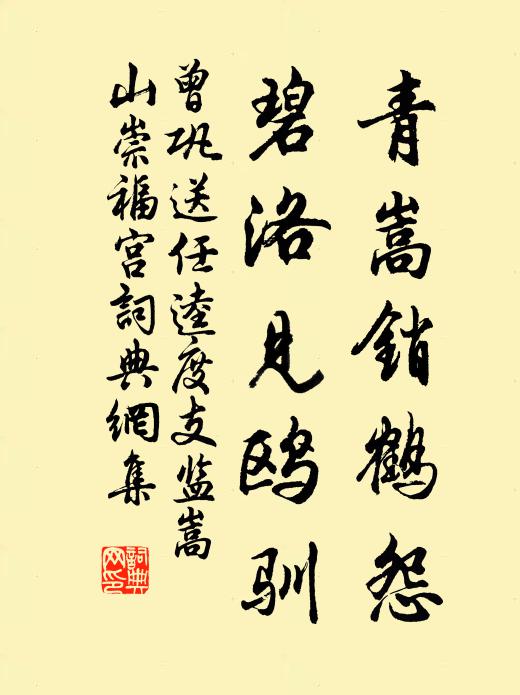 青嵩銷鹤怨
碧洛見鸥驯
曾巩送任逵度支监嵩
山崇福宫詞典網集
詞典网印